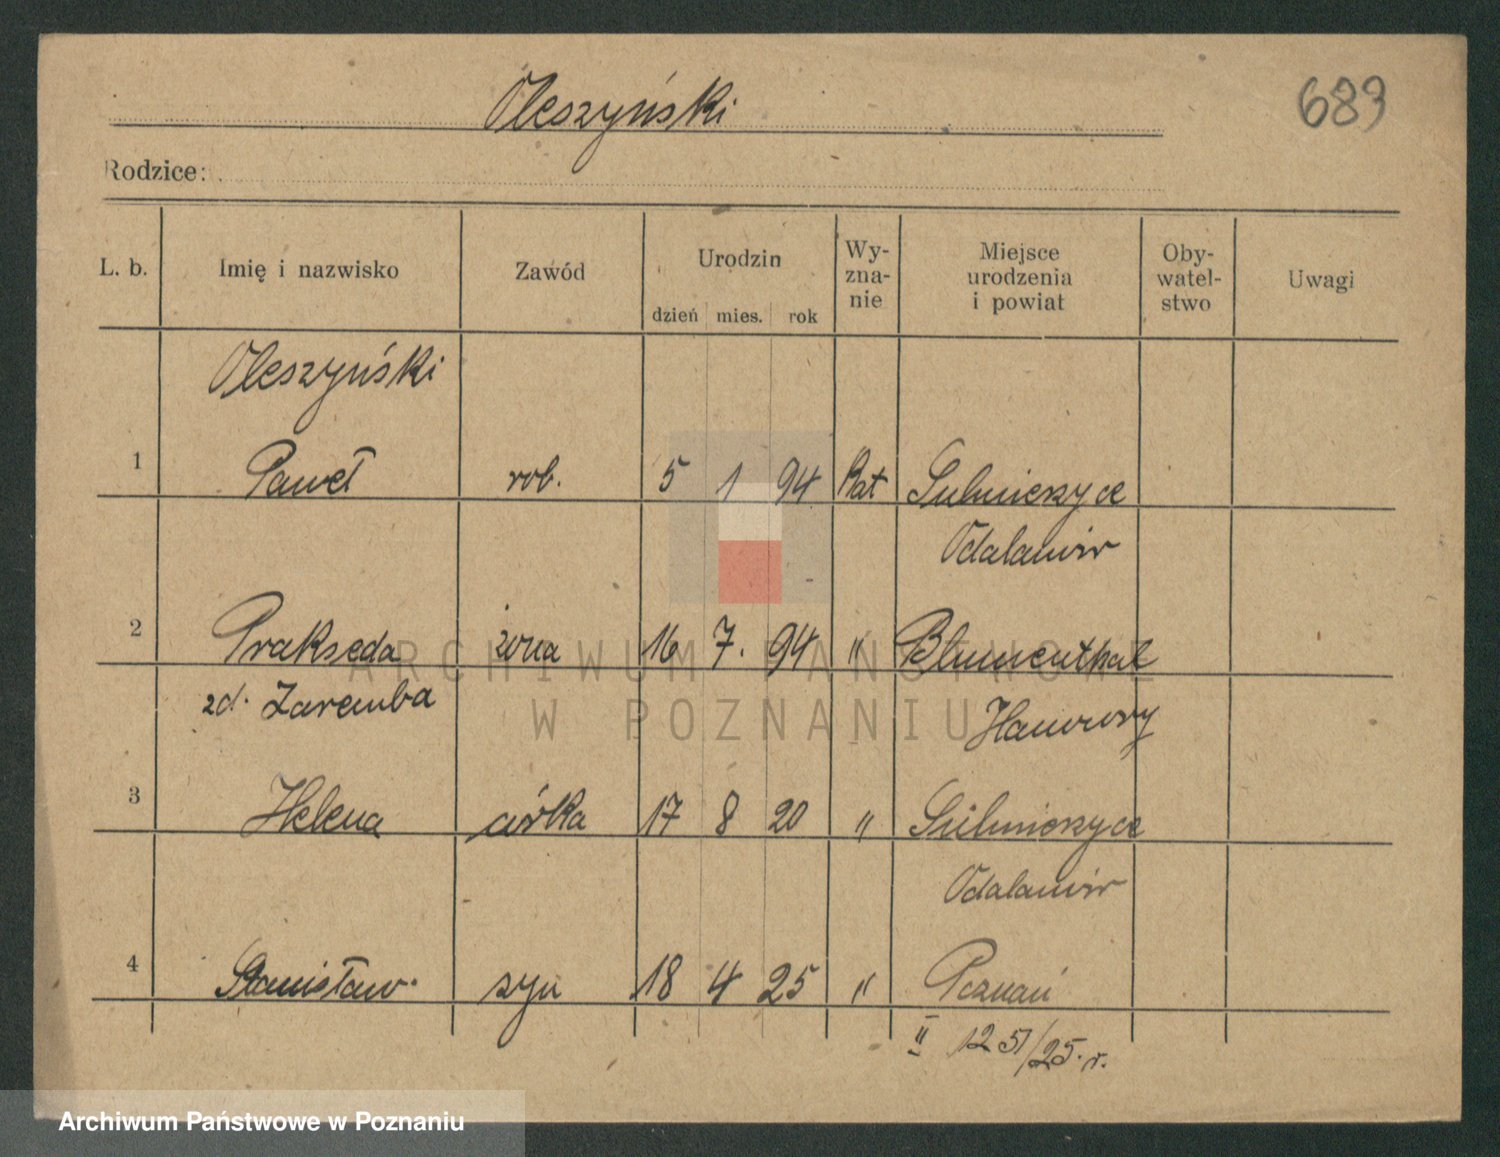 Oleszyński
683
Rodzice:
L. b. Imię i nazwisko Zawód Urodzin Wy-zna-nie Miejsce urodzenia i powiat Oby-watel-stwo Uwagi
dzień mies. rok
Oleszyński
1 Paweł rob. 5 1 94 Kat Sulmierzyce
Odalanów
2 Prakseda żona 16 7. 94 " Blumenthal
zd. Zaremba Hanowry
3 Helena córka 17 8 20 " Sulmierzyce
Odalanów
4 Stanisław syn 18 4 25 " Poznań
II 1251/25. r.
ARCHIWUM PAŃSTWOWE
W POZNANIU
Archiwum Państwowe w Poznaniu